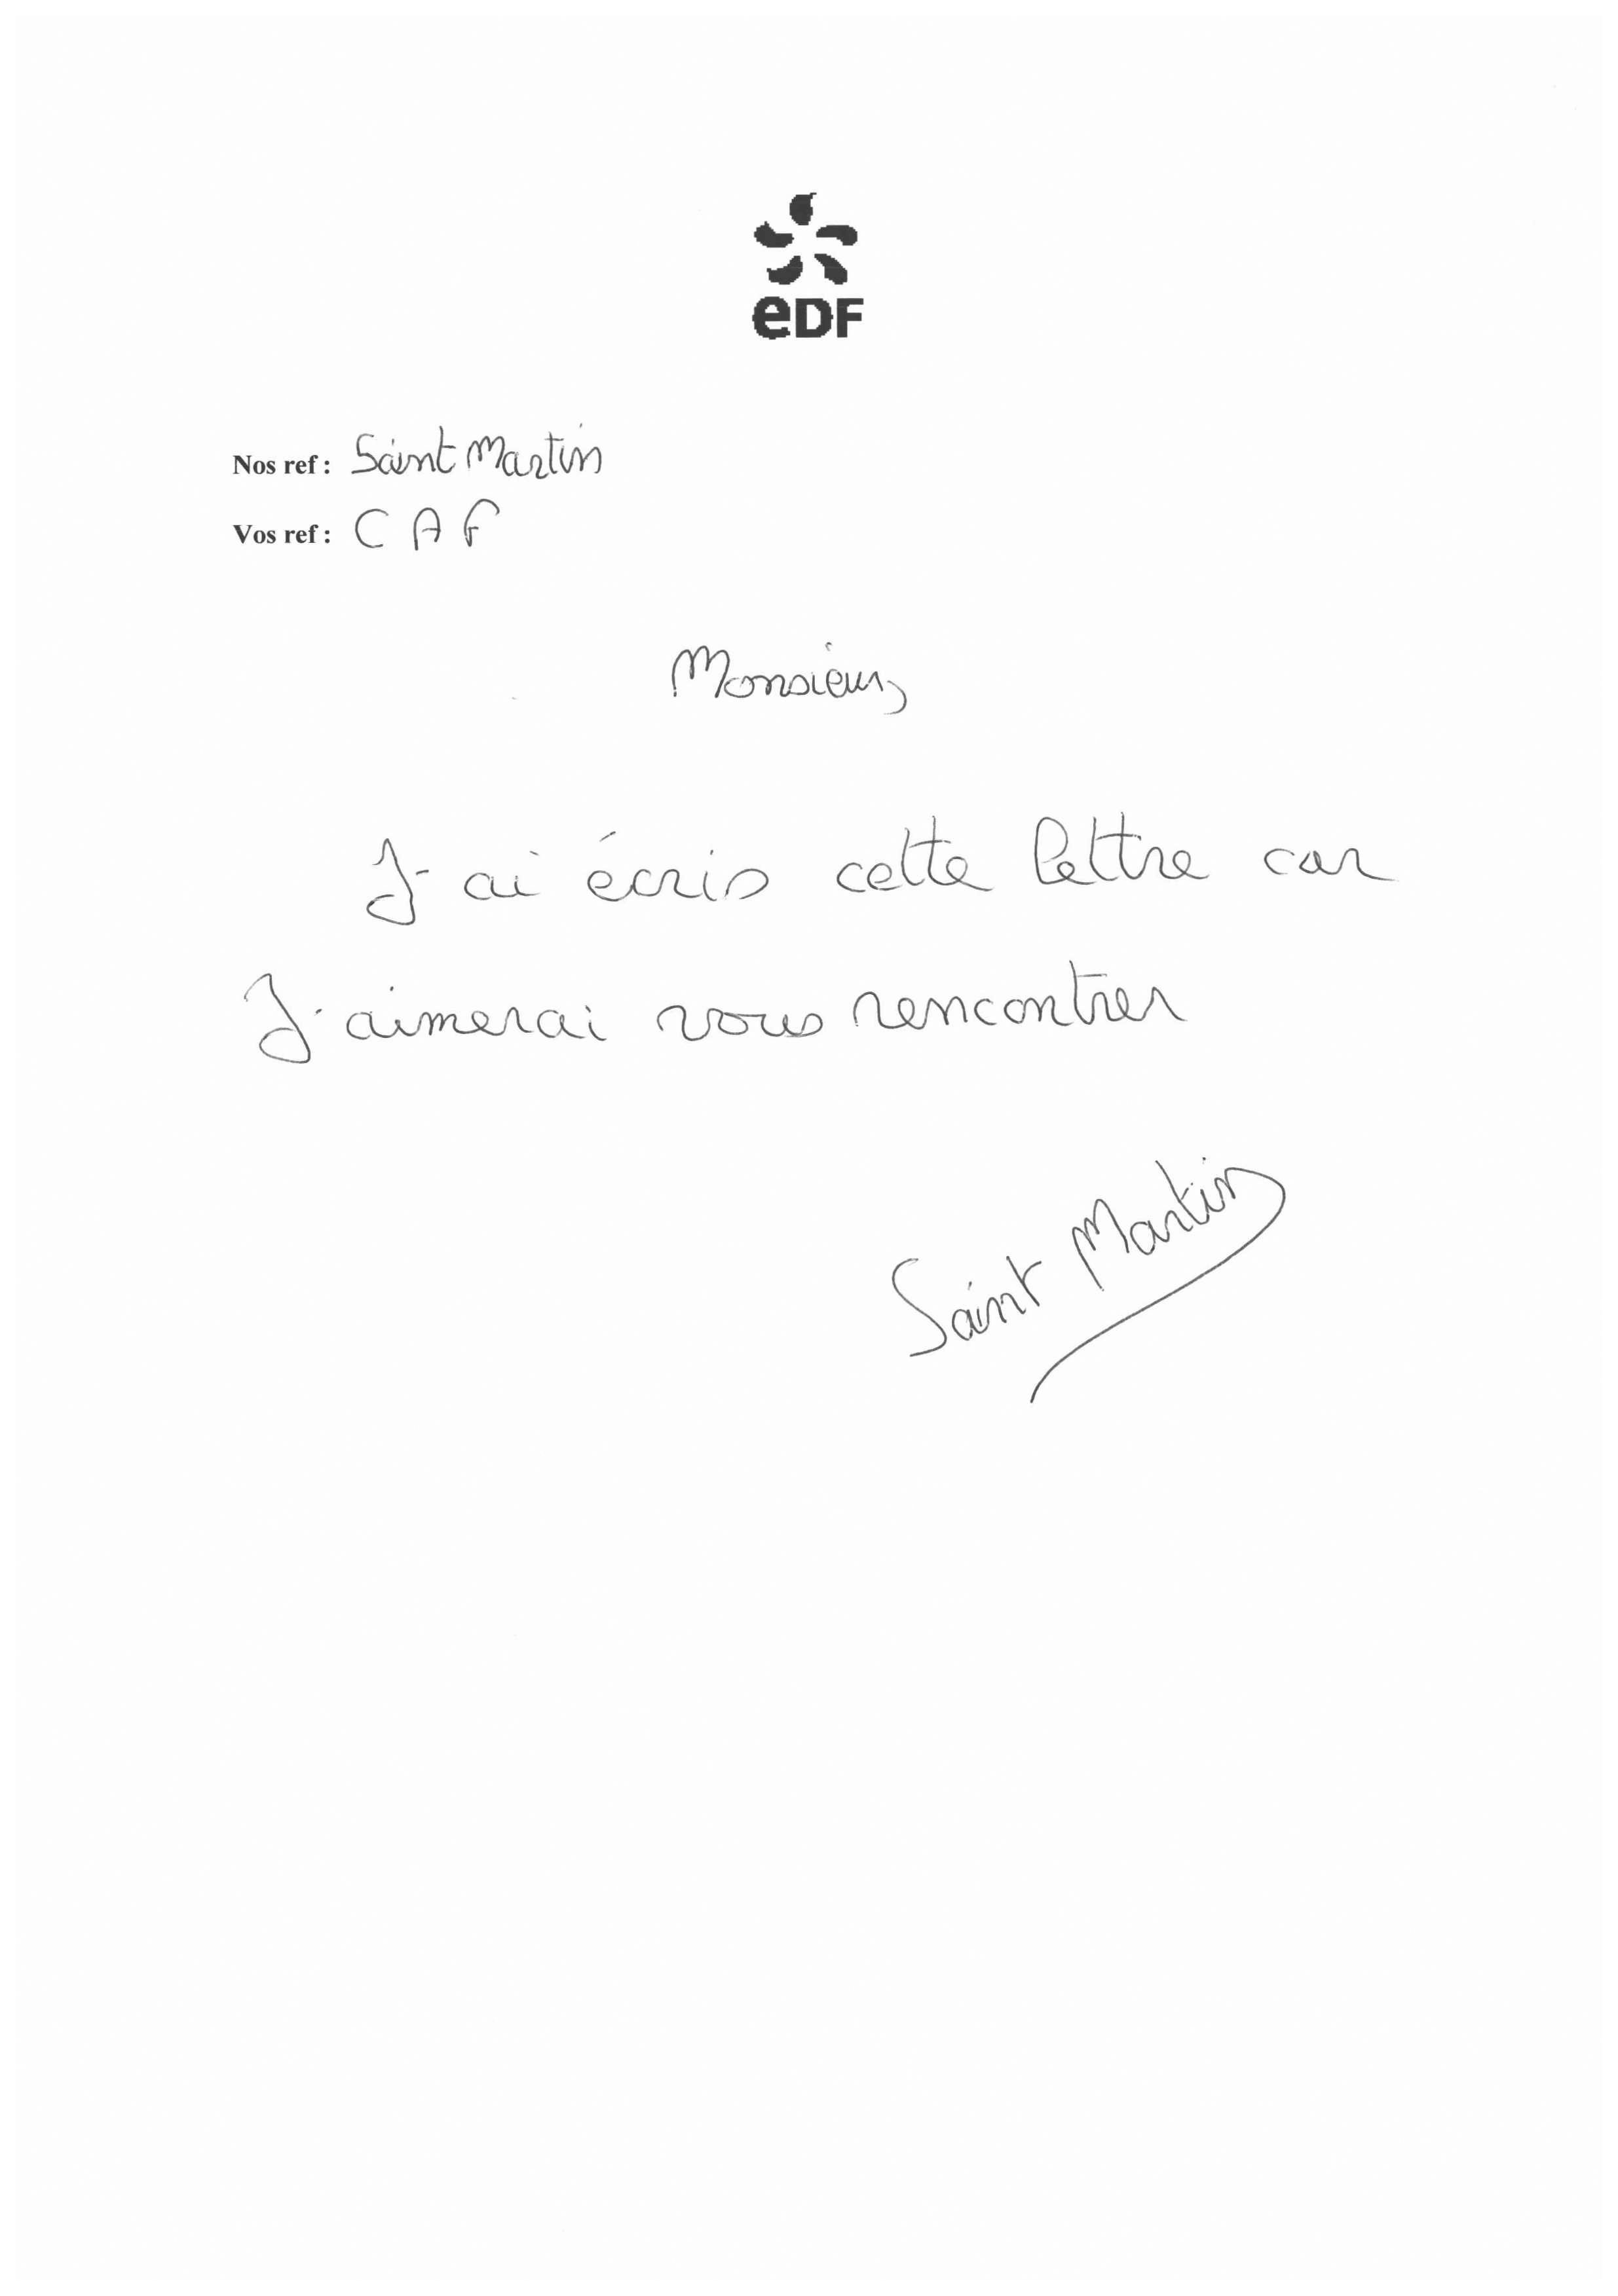 eDF
Nos ref : Saint Martin
Vos ref : CAF
Monsieur,
J'ai écris cette lettre car
J'aimerai vous rencontrer
Saint Martin